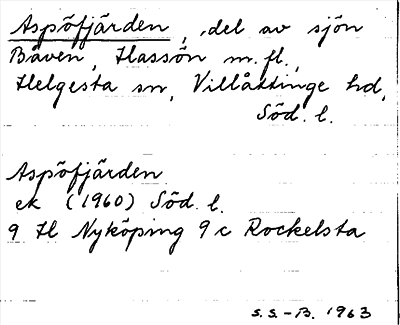 Aspöfjärden, del av sjön
Båven, Hassön m.fl.,
Helgesta sn, Villåttinge hd,
Söd. l.
Aspöfjärden
ek (1960) Söd. l.
9 H Nyköping 9 c Rockelsta
S.S.-B. 1963